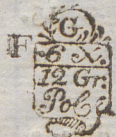 G
F 6 X.
12 Gr.
Pol.